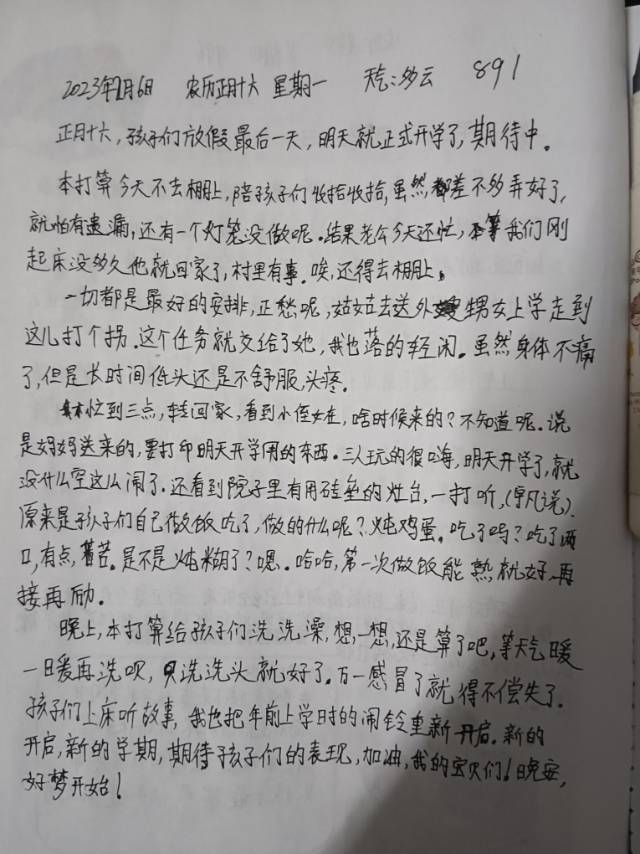 2023年2月6日 农历正月十六 星期一 天气:多云 891
正月十六,孩子们放假最后一天,明天就正式开学了,期待中。
本打算今天不去棚上,陪孩子们收拾收拾,虽然都差不多弄好了,
就怕有遗漏,还有一个灯笼没做呢。结果老公今天还忙,等我们刚
起床没多久他就回家了,村里有事。唉,还得去棚上。
一切都是最好的安排,正愁呢,姑姑去送外甥女上学走到
这儿打个拐。这个任务就交给了她,我也落的轻闲。虽然身体不痛
了,但是长时间低头还是不舒服,头疼。
忙到三点,转回家,看到小侄女在,啥时候来的?不知道呢。说
是妈妈送来的,要打印明天开学用的东西。三人玩的很嗨,明天开学了,就
没什么空这么闹了。还看到院子里有用砖垒的灶台,一打听,(凡说)
原来是孩子们自己做饭吃了,做的什么呢?炖鸡蛋。吃了吗?吃了两
口,有点苦。是不是炖糊了?嗯。哈哈,第一次做饭能熟就好,再
接再励。
晚上,本打算给孩子们洗洗澡,想一想,还是算了吧,等天气暖
一暖再洗呗,只洗洗头就好了。万一感冒了就得不偿失了。
孩子们上床听故事,我也把年前上学时的闹铃重新开启。新的
开启,新的学期,期待孩子们的表现,加油,我的宝贝们!晚安,
好梦开始!